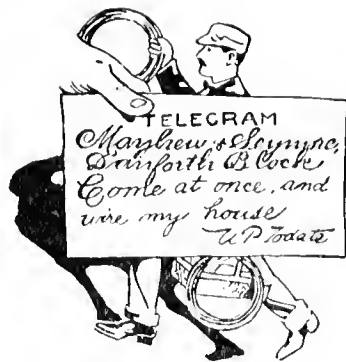 TELEGRAM
Mayhew & Scympc,
Danforth Block
Come at once, and
wire my house
U P Todate